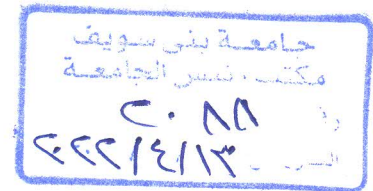 جامعة بنى سويف
مكتب رئيس الجامعة
٢٠٨٨
٢٠٢٢/٤/١٣